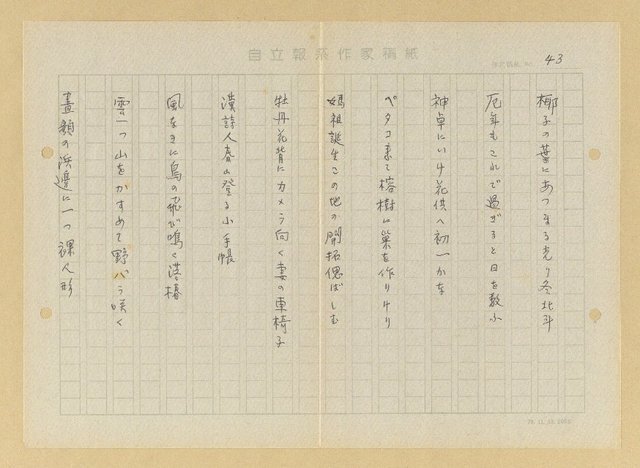 自立報系作家稿紙
43
椰子の葉にあつまる光り冬北斗
厄年もこれで過ぎると日を数ふ
神卓にいけ花供へ初一かな
ペタコ来て榕樹に巣を作りけり
媽祖誕生この地の開拓偲ばしむ
牡丹花背にカメラ向く妻の車椅子
漢詩人春山登る小手帳
風なきに鳥の飛び鳴く落椿
雲一つ山をかすめて野バラ咲く
昼顔の浜邊に一つ裸人形